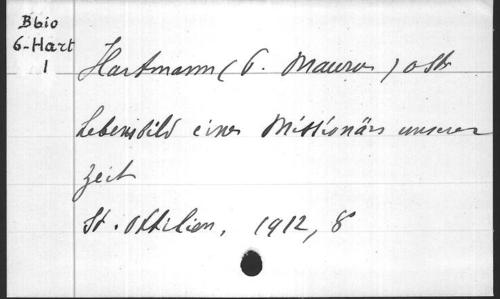 Bbio
6-Hart
1
Hartmann (P. Maurus) OSB
Lebensbild eines Missionärs unserer
Zeit
St. Ottilien, 1912, 8°